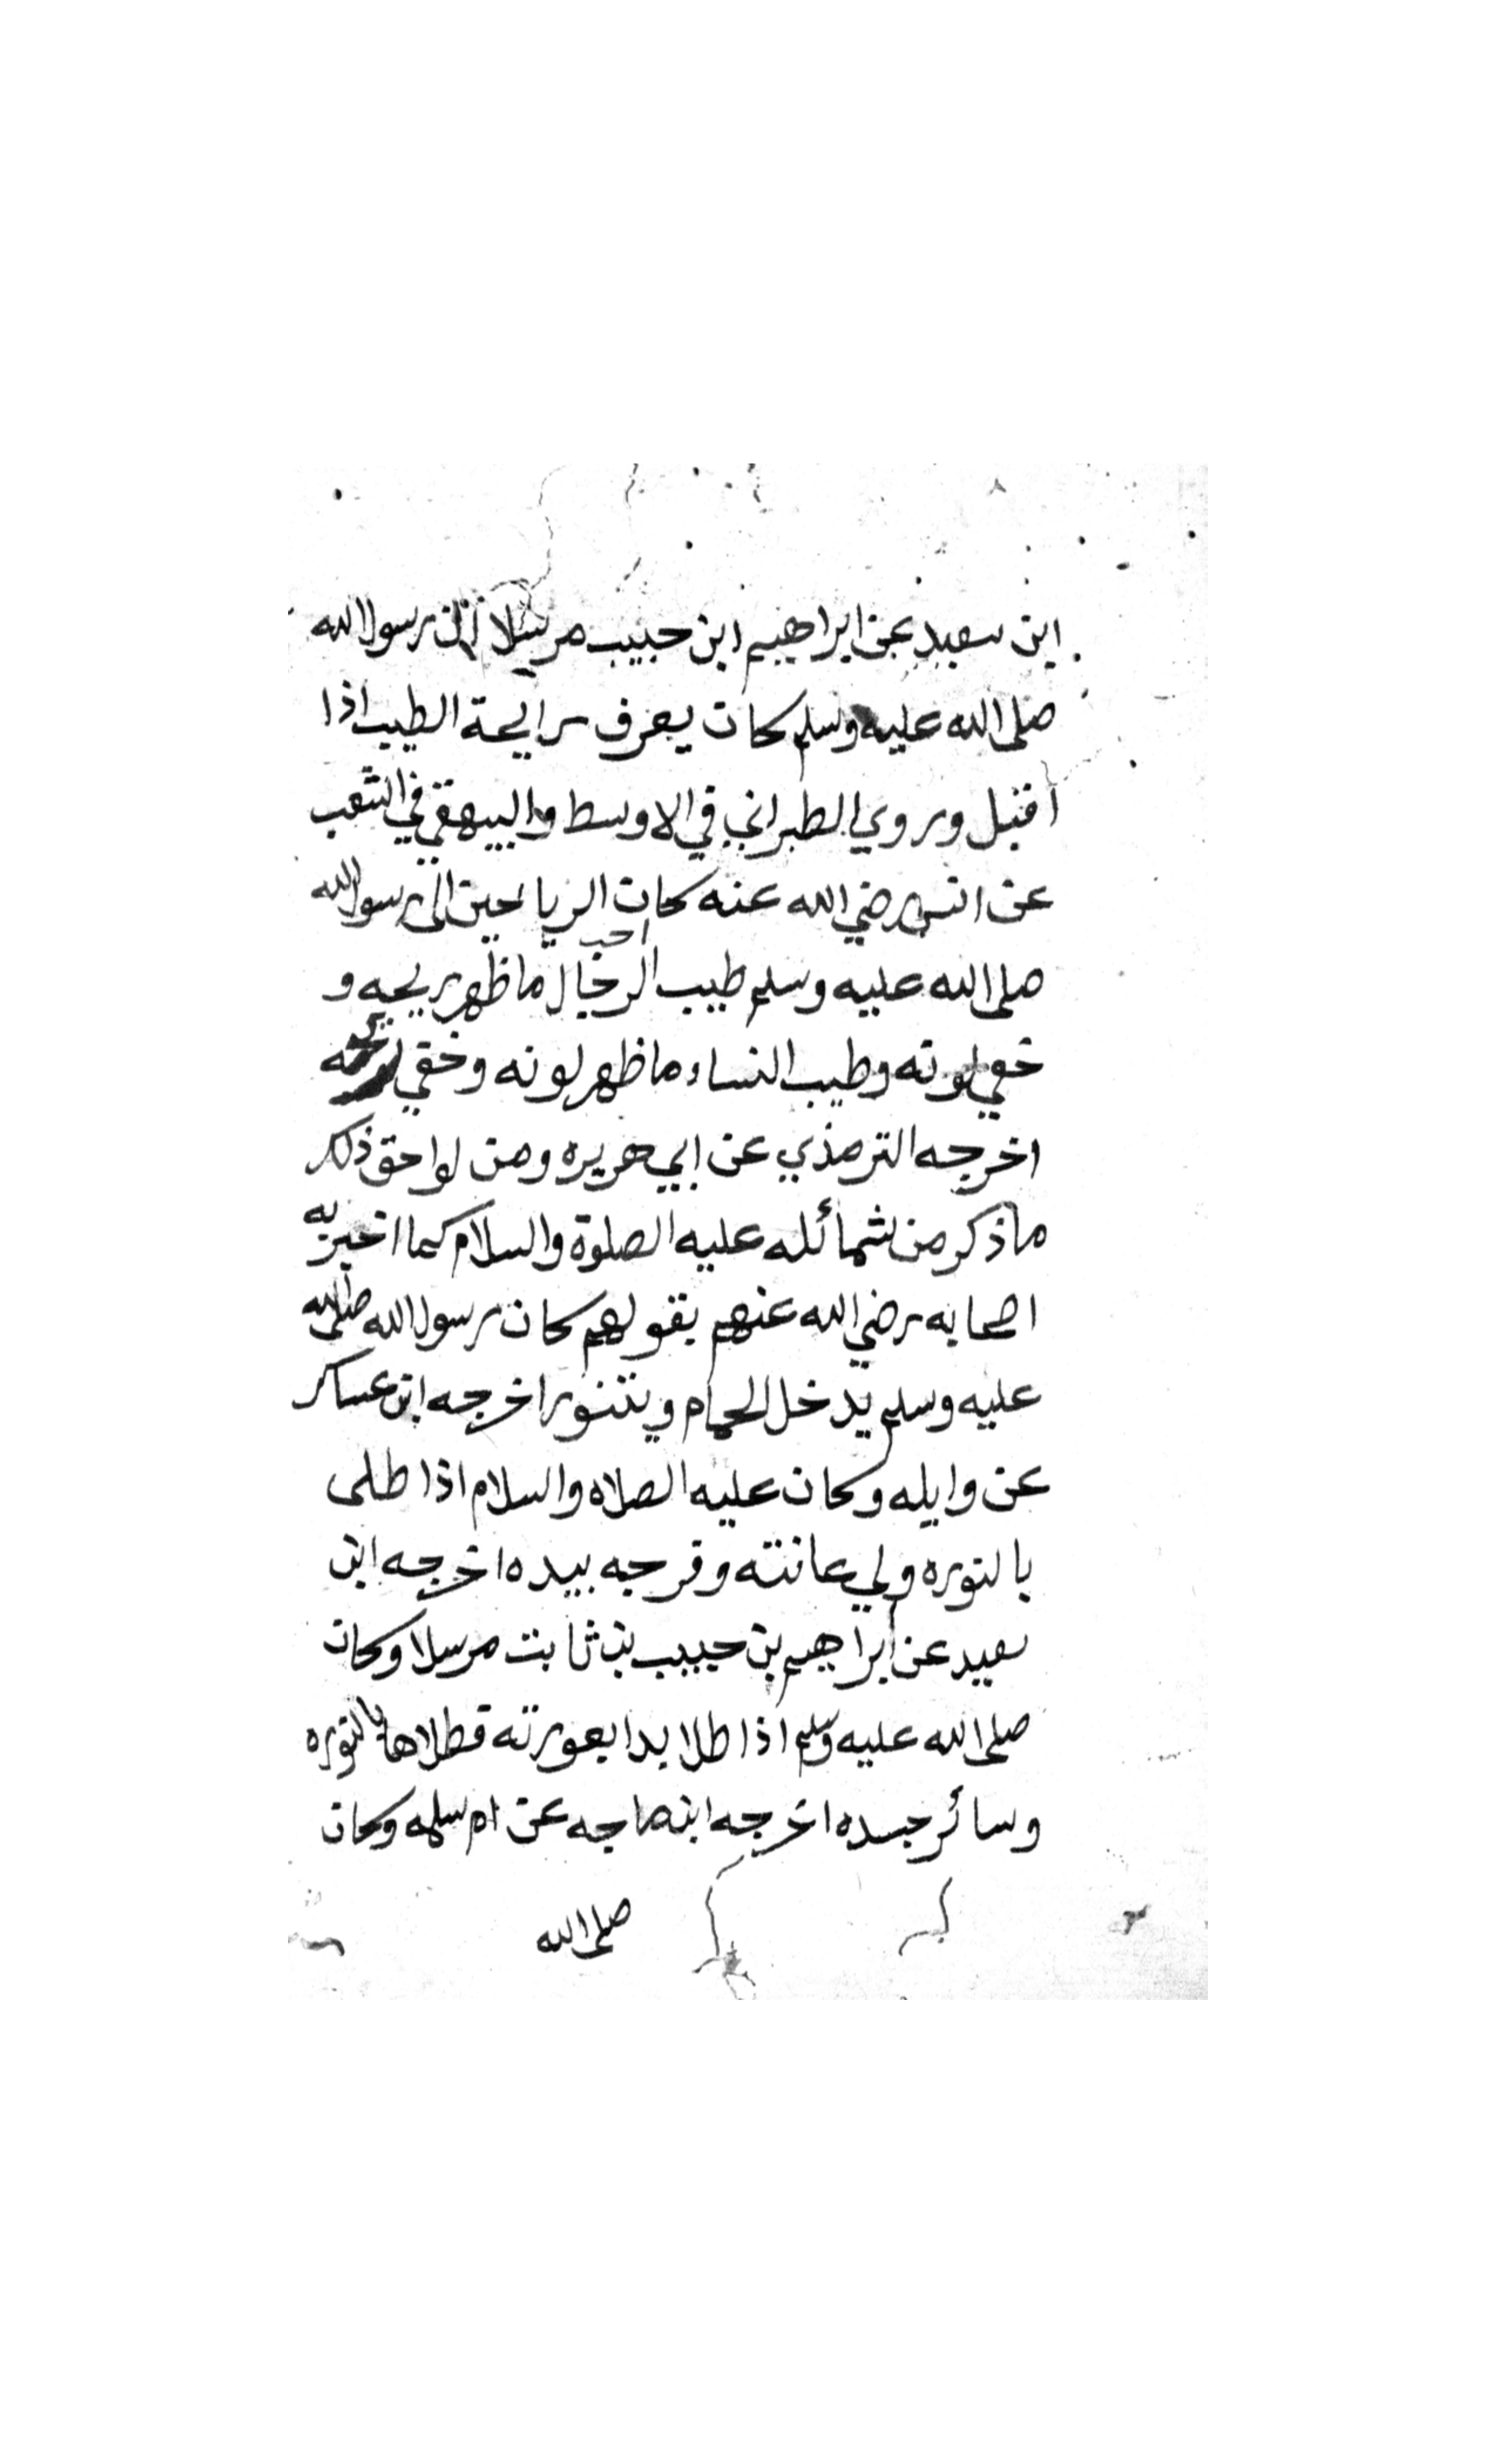 ابن سعيد عن ابراهيم ابن حبيب مرسلا ان رسول الله
صلى الله عليه وسلم كان يعرف برايحة الطيب اذا
اقبل وروي الطبراني في الاوسط والبيهقي في الشعب
عن انس رضي الله عنه كان احب الرياحين الى رسول الله
صلى الله عليه وسلم طيب الرجال ما ظهر ريحه و
خفي لونه وطيب النساء ما ظهر لونه وخفي ريحه
اخرجه الترمذي عن ابي هريره ومن لواحق ذلك
ما ذكر من شمائله عليه الصلوة والسلام كما اخبر به
اصحابه رضي الله عنهم بقولهم كان رسول الله صلى الله
عليه وسلم يدخل الحمام ويتنور اخرجه ابن عساكر
عن وايله وكان عليه الصلاه والسلام اذا طلى
بالنوره ولي عانته وفرجه بيده اخرجه ابن
سعيد عن ابراهيم بن حبيب بن ثابت مرسلا وكان
صلى الله عليه وسلم اذا طلا بدا بعورته فطلاها بالنوره
وسائر جسده اخرجه ابن ماجه عن ام سلمه وكان
صلى الله